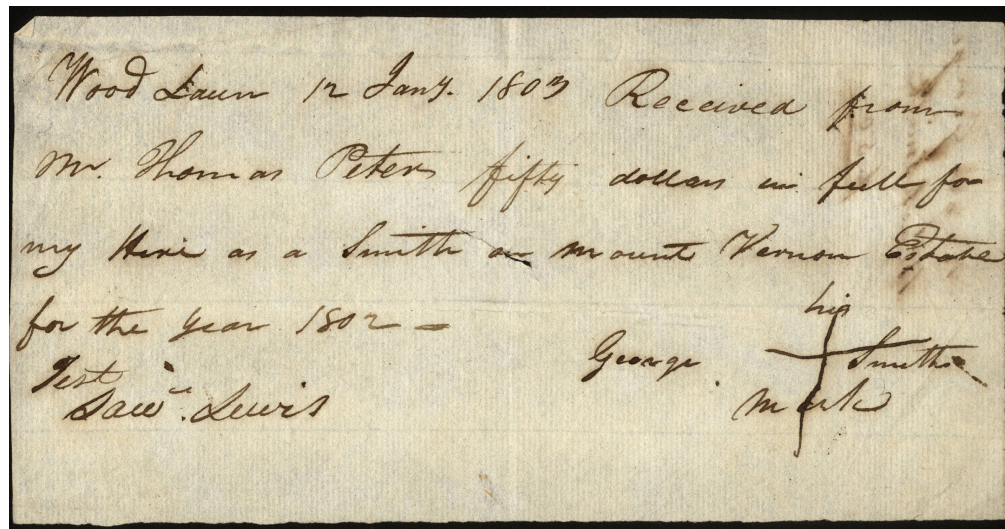 Wood Lawn 12 Jany. 1803 Received from
Mr. Thomas Peter fifty dollars in full for
my Hire as a Smith on Mount Vernon Estate
for the year 1802 =
his
George + Smith
mark
Test
Lawe. Lewis